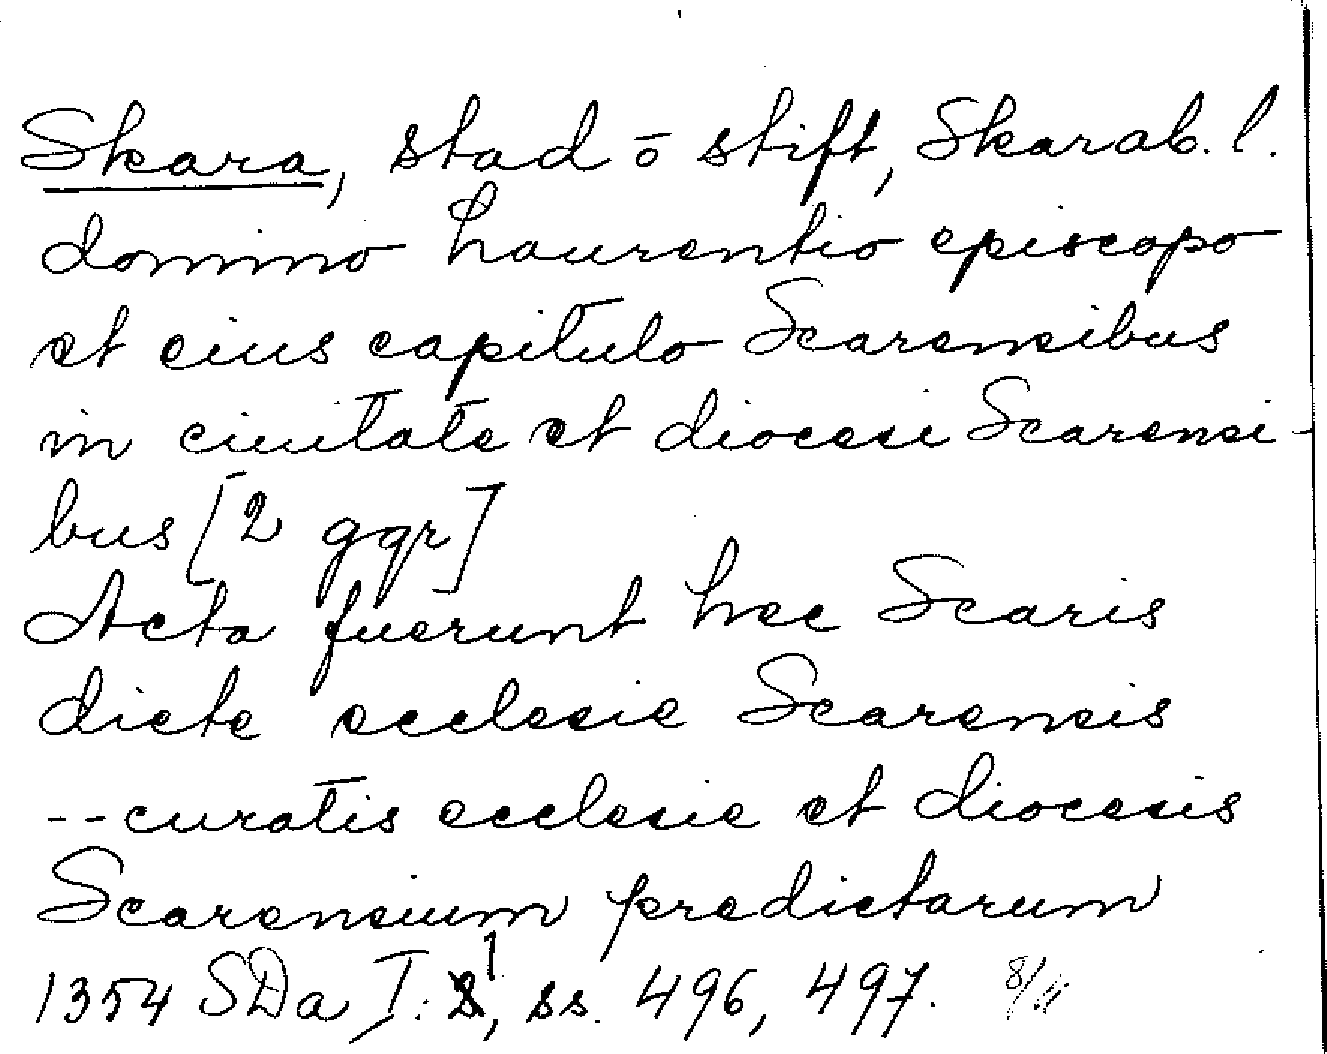 Skara, stad o stift, Skarab. l.
domino Laurentio episcopo
et eius capitulo Scarensibus
in ciuitate et diocesi Scarensi-
bus [2 ggr]
Acta fuerunt hec Scaris
dicte ecclesie Scarensis
--curatis ecclesie et diocesis
Scarensium predictarum
1354 SDa I: 1, ss. 496, 497.